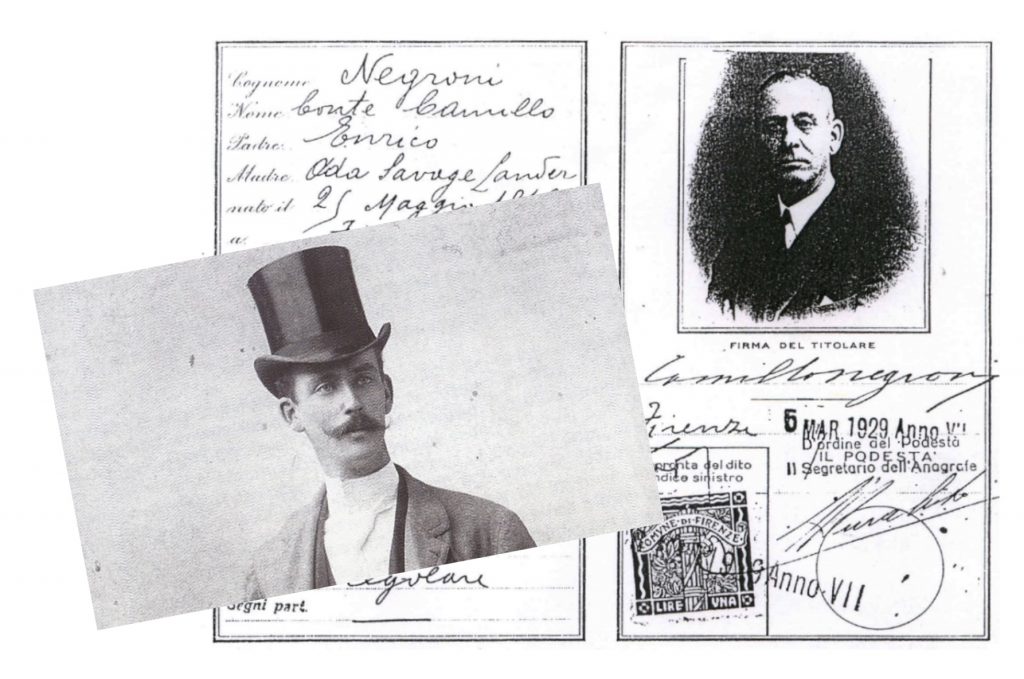 Cognome Negroni
Nome Conte Camillo
Padre Enrico
Madre Ada Savage Landor
nato il 25 Maggio
a
Segni part.
FIRMA DEL TITOLARE
Camillo Negroni
Firenze
6 MAR 1929 Anno VII
D'ordine del Podestà
IL PODESTA'
Il Segretario dell'Anagrafe
pronta del dito
ndice sinistro
COMVNE·DI·FIRENZE
LIRE VNA
Anno VII